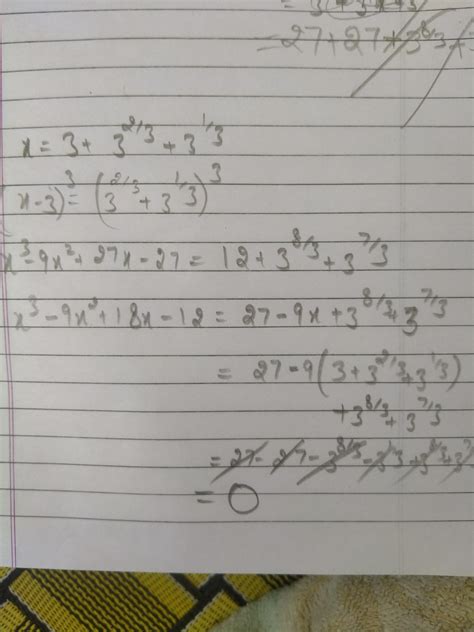 = 3 + 3
= 27 + 27 + 3^{8/3} +
x = 3 + 3^{2/3} + 3^{1/3}
x - 3)^3 = (3^{2/3} + 3^{1/3})^3
x^3 - 9x^2 + 27x - 27 = 12 + 3^{8/3} + 3^{7/3}
x^3 - 9x^2 + 18x - 12 = 27 - 9x + 3^{8/3} + 3^{7/3}
= 27 - 9(3 + 3^{2/3} + 3^{1/3})
+ 3^{8/3} + 3^{7/3}
= 27 - 27 - 3^{8/3} - 3^{7/3} + 3^{8/3} + 3^7
= 0